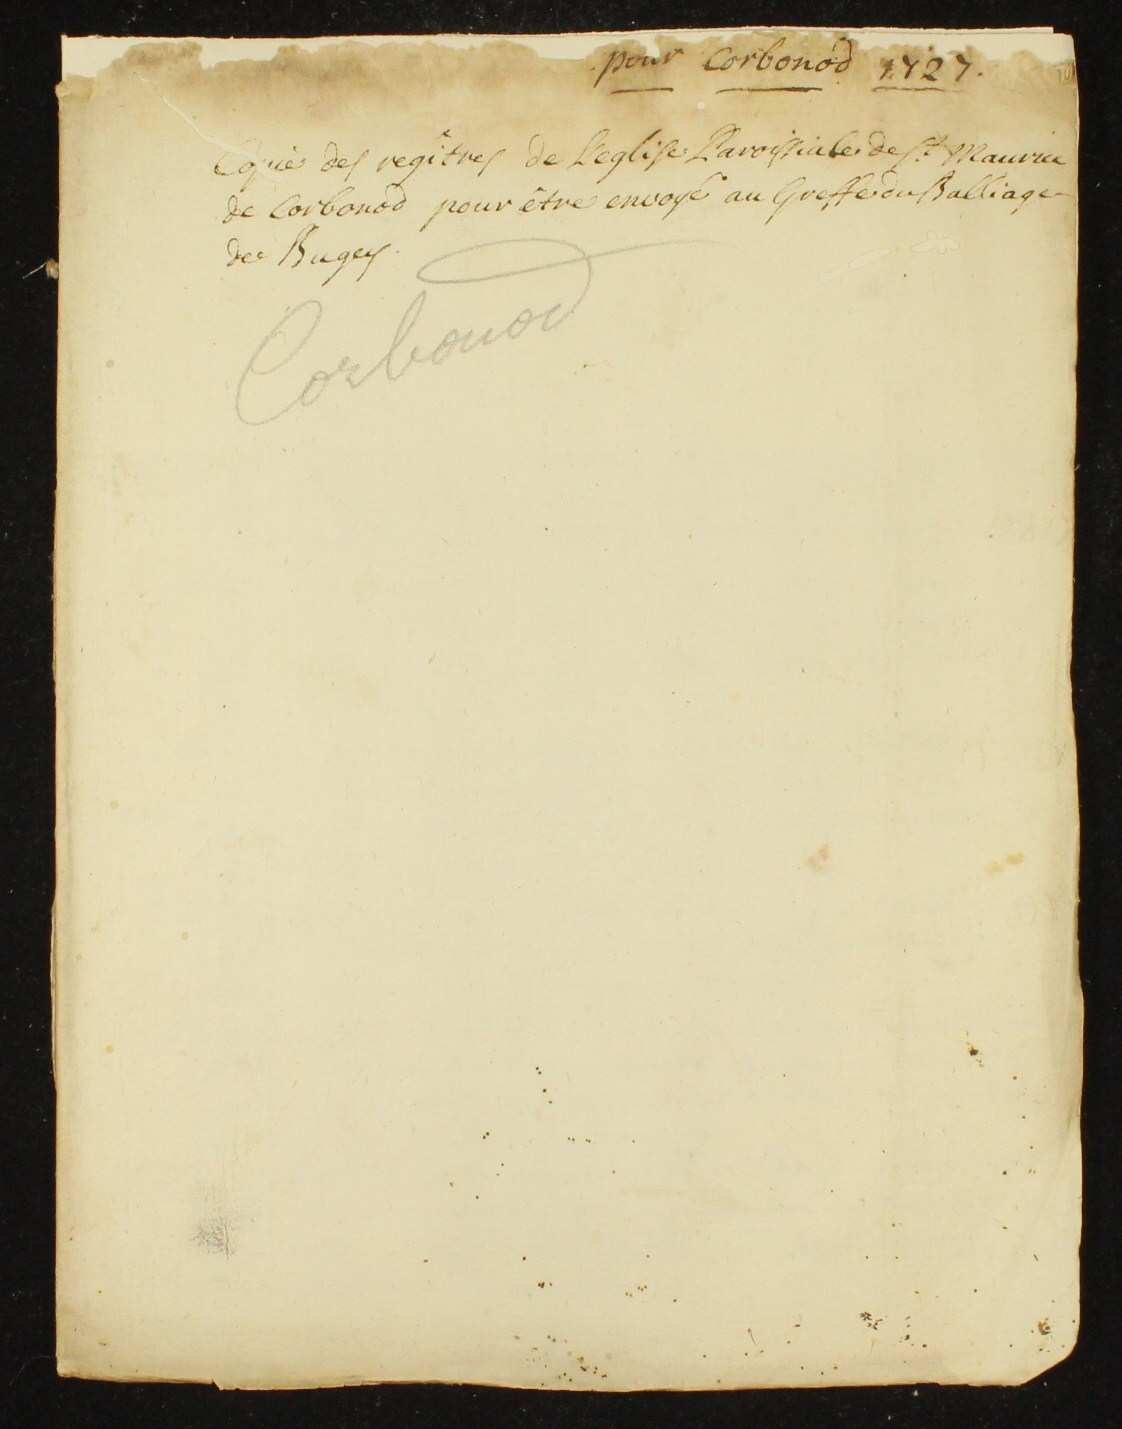 pour Corbonod 1727.
Copie des regîtres de L'eglise Paroissiale de St Maurice
de Corbonod pour être envoyé au Greffe du Balliage
de Bugey.
Corbonod